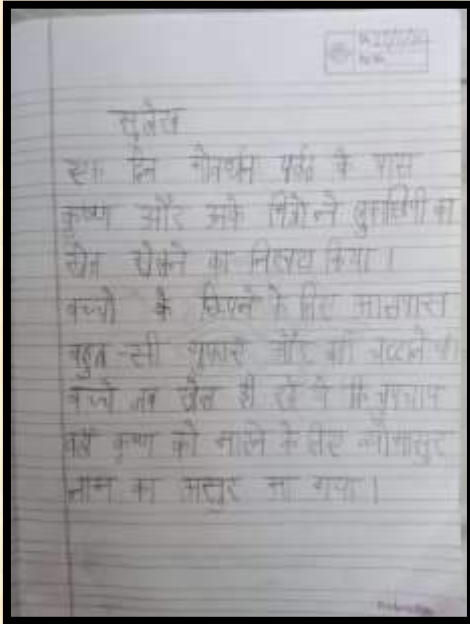 सुलेख
एक दिन गोवर्धन पर्वत के पास
कृष्ण और उनके मित्रों ने लुकाछिपी का
खेल खेलने का निश्चय किया।
बच्चों के छिपने के लिए आसपास
बहुत-सी गुफाएं और बड़ी चट्टानें थी
बच्चे जब खेल ही रहे थे कि चुपचाप
वहाँ कृष्ण को मारने के लिए व्योमासुर
नाम का असुर आ गया।